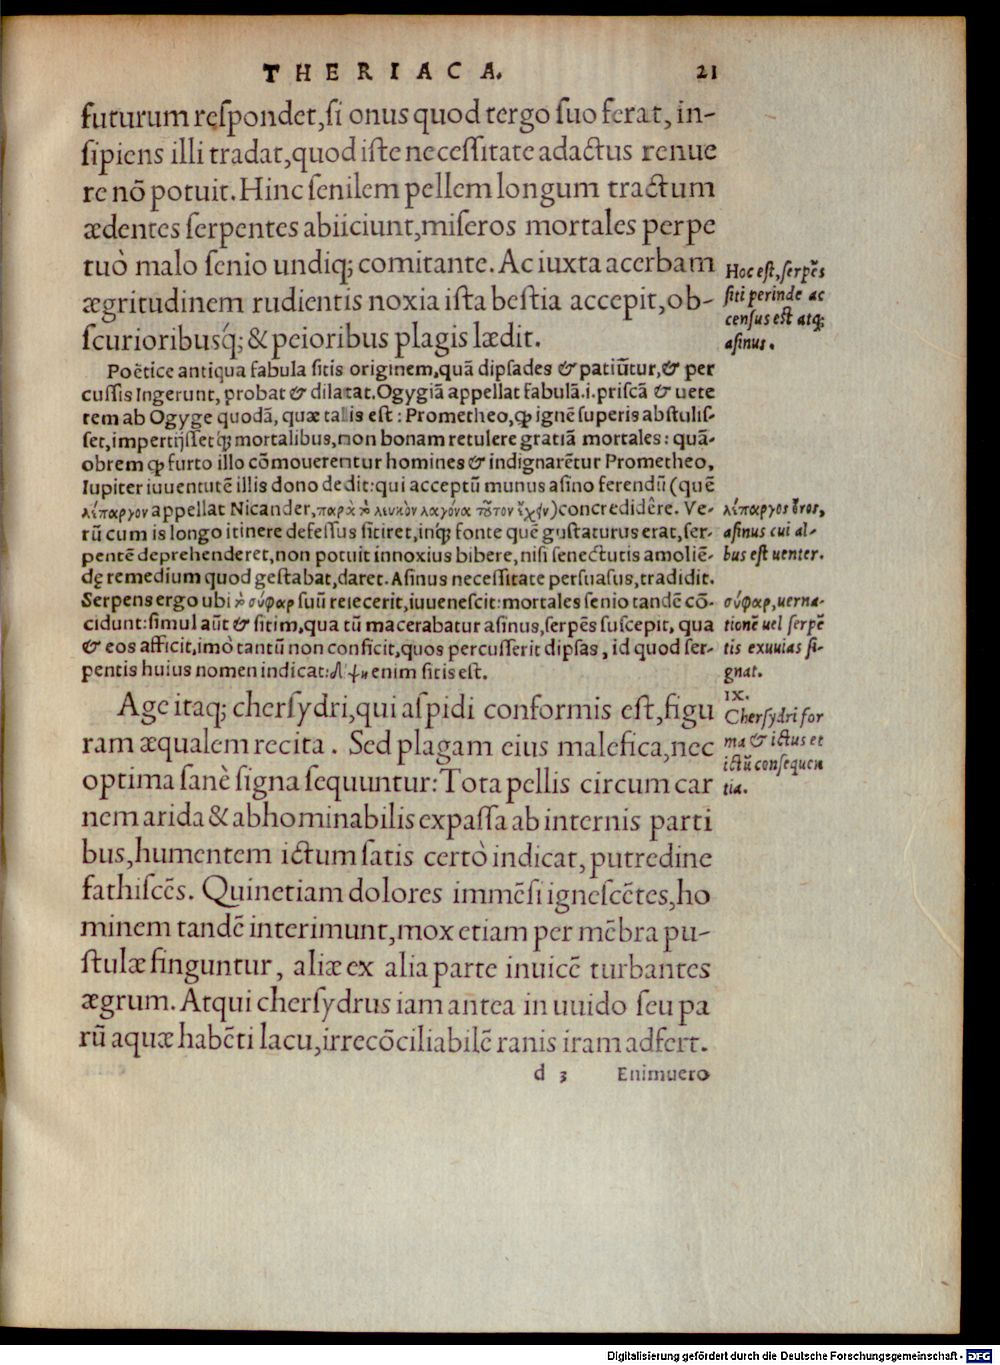 THERIACA. 21
futurum respondet,si onus quod tergo suo ferat, in-
sipiens illi tradat,quod iste necessitate adactus renue
re nō potuit. Hinc senilem pellem longum tractum
ædentes serpentes abiiciunt,miseros mortales perpe
tuò malo senio undiq; comitante. Ac iuxta acerbam
ægritudinem rudientis noxia ista bestia accepit,ob-
scurioribusq́; & peioribus plagis lædit.
Hoc est, serpēs
siti perinde ac
census est atq;
asinus.
Poëtice antiqua fabula sitis originem,quā dipsades & patiūtur,& per
cussis ingerunt, probat & dilatat. Ogygiā appellat fabulā.i.priscā & uete
rem ab Ogyge quodā, quæ talis est: Prometheo, ꝙ ignē superis abstulis-
set,impertijsset q́; mortalibus,non bonam retulere gratiā mortales: quā-
obrem ꝙ furto illo cōmouerentur homines & indignarētur Prometheo,
Iupiter iuuentutē illis dono dedit:qui acceptū munus asino ferendū (quē
λίπαργον appellat Nicander, παρὰ τὸ λευκὸν λαγόνα τοῦτον ἔχειν) concredidêre. Ve-
rū cum is longo itinere defessus sitiret,inq́; fonte quē gustaturus erat,ser-
pentē deprehenderet,non potuit innoxius bibere, nisi senectutis amoliē-
dę remedium quod gestabat,daret. Asinus necessitate persuasus,tradidit.
Serpens ergo ubi τὸ σύφαρ suū reiecerit,iuuenescit:mortales senio tandē cō-
cidunt:simul aūt & sitim,qua tū macerabatur asinus,serpēs suscepit, qua
& eos afficit,imò tantū non conficit,quos percusserit dipsas, id quod ser-
pentis huius nomen indicat: δίψη enim sitis est.
λίπαργος ὄνος,
asinus cui al-
bus est uenter.
σύφαρ, uerna-
tionē uel serpē
tis exuuias si-
gnat.
Age itaq; chersydri,qui aspidi conformis est,figu
ram æqualem recita. Sed plagam eius malefica,nec
optima sanè signa sequuntur: Tota pellis circum car
nem arida & abhominabilis expassa ab internis parti
bus,humentem ictum satis certò indicat, putredine
fathiscēs. Quinetiam dolores immēsi ignescētes,ho
minem tandē interimunt,mox etiam per mēbra pu-
stulæ finguntur, aliæ ex alia parte inuicē turbantes
ægrum. Atqui chersydrus iam antea in uuido seu pa
rū aquæ habēti lacu,irrecōciliabilē ranis iram adfert.
IX.
Chersydri for
ma & ictus et
ictū consequen
tia.
d 3 Enimuero
Digitalisierung gefördert durch die Deutsche Forschungsgemeinschaft - DFG